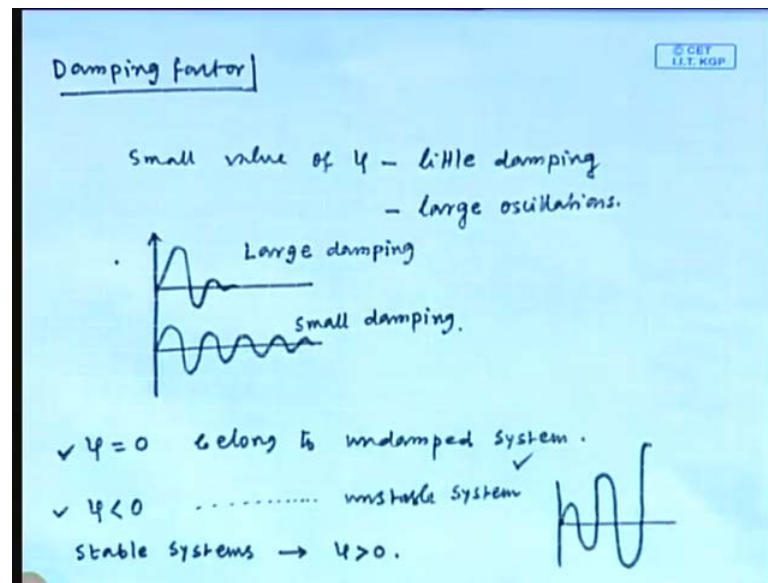 Damping factor
© CET
I.I.T. KGP
Small value of ψ - little damping
- large oscillations.
Large damping
Small damping.
✓ ψ = 0 belong to undamped system.
✓ ψ < 0 ............ unstable system ✓
Stable systems → ψ > 0.